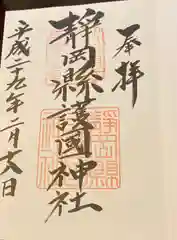 奉拝
靜岡縣護國神社
平成二十九年二月十八日